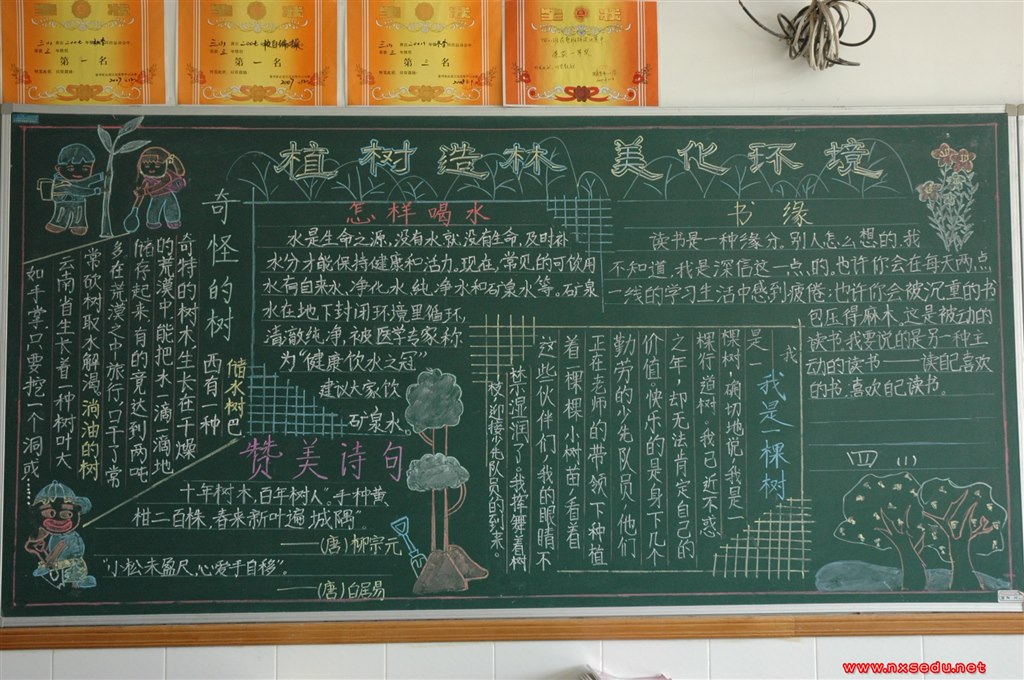 第一名
第一名
第三名
植树造林 美化环境
奇怪的树
储水树
西有一种
奇特的树木生长在干燥
的荒漠中,能把水一滴一滴地
储存起来,有的竟达到两吨
多。在荒漠之中旅行,口干了常
常砍树取水解渴。淌油的树
云南省生长着一种树叶大
如手掌,只要挖一个洞,或……
怎样喝水
水是生命之源,没有水就没有生命,及时补
水分才能保持健康和活力。现在,常见的可饮用
水有自来水、净化水、纯净水和矿泉水等。矿泉
水在地下封闭环境里循环,
清澈纯净,被医学专家称
为“健康饮水之冠”
建议大家饮
矿泉水。
赞美诗句
十年树木,百年树人”。手种黄
柑二百株,春来新叶遍城隅”。
——(唐)柳宗元
“小松未盈尺,心爱手自移”。
——(唐)白居易
我是一棵树
我
是一
棵树,确切地说,我是一
棵行道树。我已近不惑
之年,却无法肯定自己的
价值。快乐的是身下几个
勤劳的少先队员,他们
正在老师的带领下种植
着一棵棵小树苗,看着
这些伙伴们,我的眼睛不
禁湿润了。我挥舞着树
枝,迎接少先队员的到来。
书缘
读书是一种缘分,别人怎么想的,我
不知道,我是深信这一点的。也许你会在每天两点
一线的学习生活中感到疲倦;也许你会被沉重的书
包压得麻木。这是被动的
读书,我要说的是另一种主
动的读书——读自己喜欢
的书,喜欢自己读书。
四(1)
www.nxsedu.net